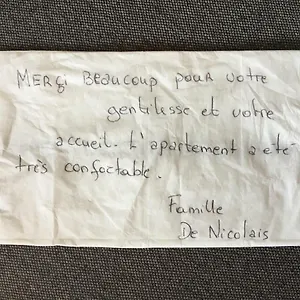 MERçi BEAUCOUP POUR VOTRE
gentilesse et votre
accueil. L'apartement a eté
très confortable.
Famille
De Nicolais